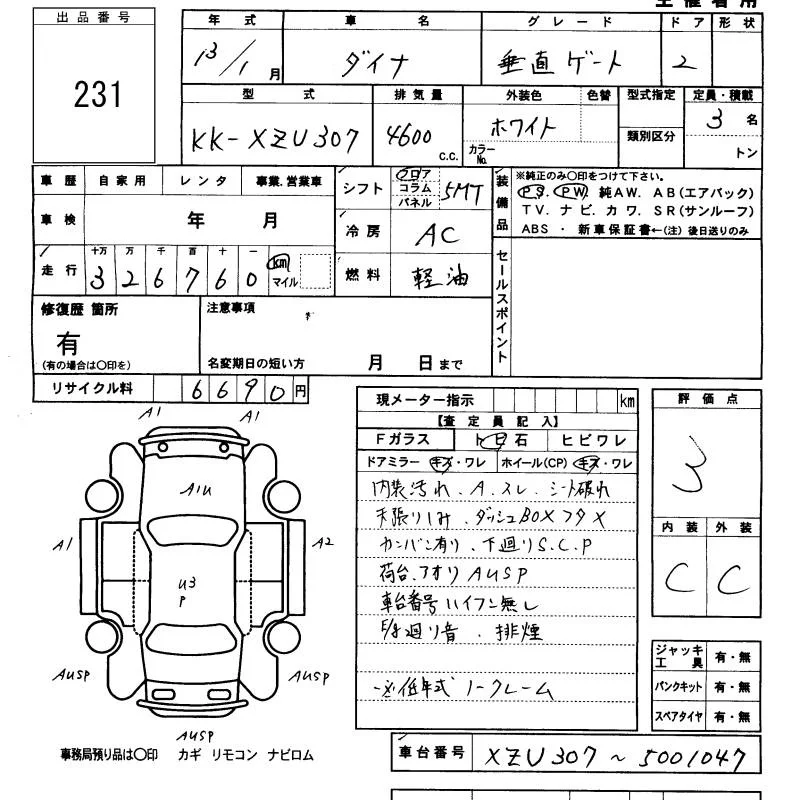 主催者用
出品番号
231
年式 車名 グレード ドア 形状
13/1月 ダイナ 垂直ゲート 2
型式 排気量 外装色 色替 型式指定 定員・積載
KK-XZU307 4600 c.c. ホワイト カラーNo. 類別区分 3名
トン
車歴 自家用 レンタ 事業.営業車
車検 年 月
走行 十万 万 千 百 十 一
326760 km マイル
シフト フロア コラム パネル 5MT
冷房 AC
燃料 軽油
装備品
※純正のみ〇印をつけて下さい。
P S. P W. 純AW. A B (エアバック)
T V. ナビ. カワ. S R (サンルーフ)
A B S ・ 新車保証書←(注) 後日送りのみ
セールスポイント
修復歴 箇所
有
(有の場合は〇印を)
注意事項
名変期日の短い方 月 日まで
リサイクル料 6690円
A1 A1
A1U
A1 A2
U3
P
AUSP AUSP
AUSP
事務局預り品は〇印 カギ リモコン ナビロム
現メーター指示 km
【査定員記入】
Fガラス ト日石 ヒビワレ
ドアミラー キズ・ワレ ホイール(CP) キズ・ワレ
内装汚れ. A.スレ. シート破れ
天張りシミ. ダッシュBOXフタX
カンバン有り. 下廻りS.C.P
荷台.アオリAUSP
車台番号ハイフン無し
E/g廻り音. 排煙
※低年式ノークレーム
評価点
3
内装 外装
C C
ジャッキ工具 有・無
パンクキット 有・無
スペアタイヤ 有・無
車台番号 XZU307～5001047